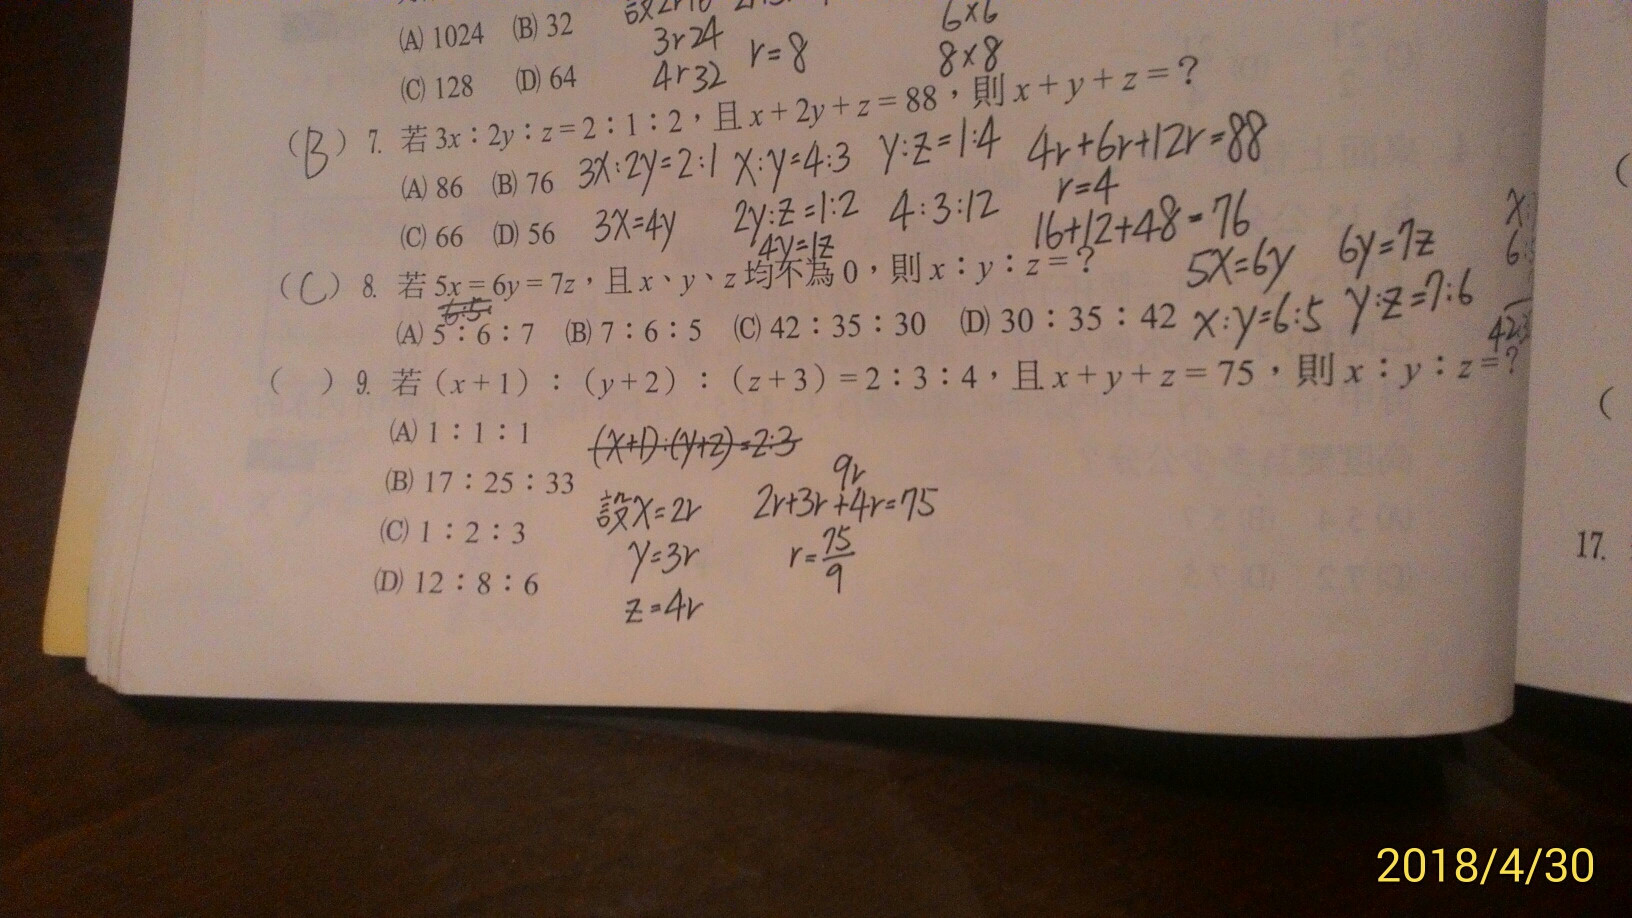 (A) 1024 (B) 32
3r 24
r=8
6×6
8×8
(C) 128 (D) 64
4r 32
(B) 7. 若 3x:2y:z=2:1:2,且 x+2y+z=88,則 x+y+z=?
(A) 86 (B) 76 3X:2Y=2:1 X:Y=4:3 Y:Z=1:4 4r+6r+12r=88
r=4
(C) 66 (D) 56 3X=4Y 2Y:Z=1:2 4:3:12 16+12+48=76
4Y=1Z
(C) 8. 若 5x=6y=7z,且 x、y、z 均不為 0,則 x:y:z=? 5X=6Y 6Y=7Z
6:5
(A) 5:6:7 (B) 7:6:5 (C) 42:35:30 (D) 30:35:42 X:Y=6:5 Y:Z=7:6
( ) 9. 若(x+1):(y+2):(z+3)=2:3:4,且 x+y+z=75,則 x:y:z=?
(A) 1:1:1 (X+1):(Y+2)=2:3
(B) 17:25:33 9r
設X=2r 2r+3r+4r=75
(C) 1:2:3 Y=3r r=75/9
(D) 12:8:6 Z=4r
17.
2018/4/30